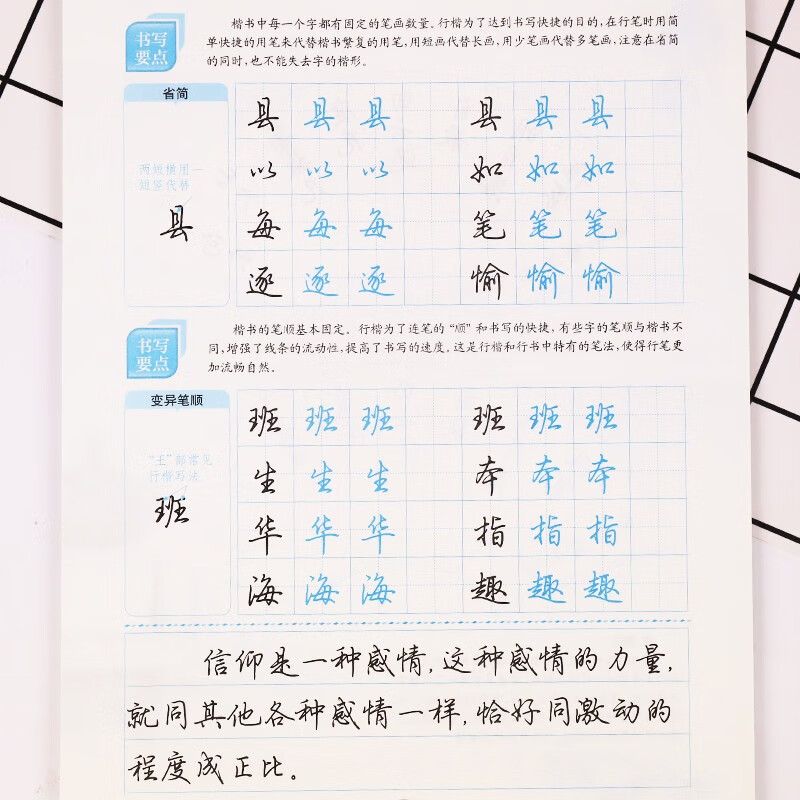 书写
要点
楷书中每一个字都有固定的笔画数量。行楷为了达到书写快捷的目的,在行笔时用简
单快捷的用笔来代替楷书繁复的用笔,用短画代替长画,用少笔画代替多笔画,注意在省简
的同时,也不能失去字的楷形。
省简
两短横用一
短竖代替
县
县 县 县 县 县 县
以 以 以 如 如 如
每 每 每 笔 笔 笔
逐 逐 逐 愉 愉 愉
书写
要点
楷书的笔顺基本固定。行楷为了连笔的“顺”和书写的快捷,有些字的笔顺与楷书不
同,增强了线条的流动性,提高了书写的速度。这是行楷和行书中特有的笔法,使得行笔更
加流畅自然。
变异笔顺
“王”部常见
行楷写法
班
班 班 班 班 班 班
生 生 生 本 本 本
华 华 华 指 指 指
海 海 海 趣 趣 趣
信仰是一种感情,这种感情的力量,
就同其他各种感情一样,恰好同激动的
程度成正比。